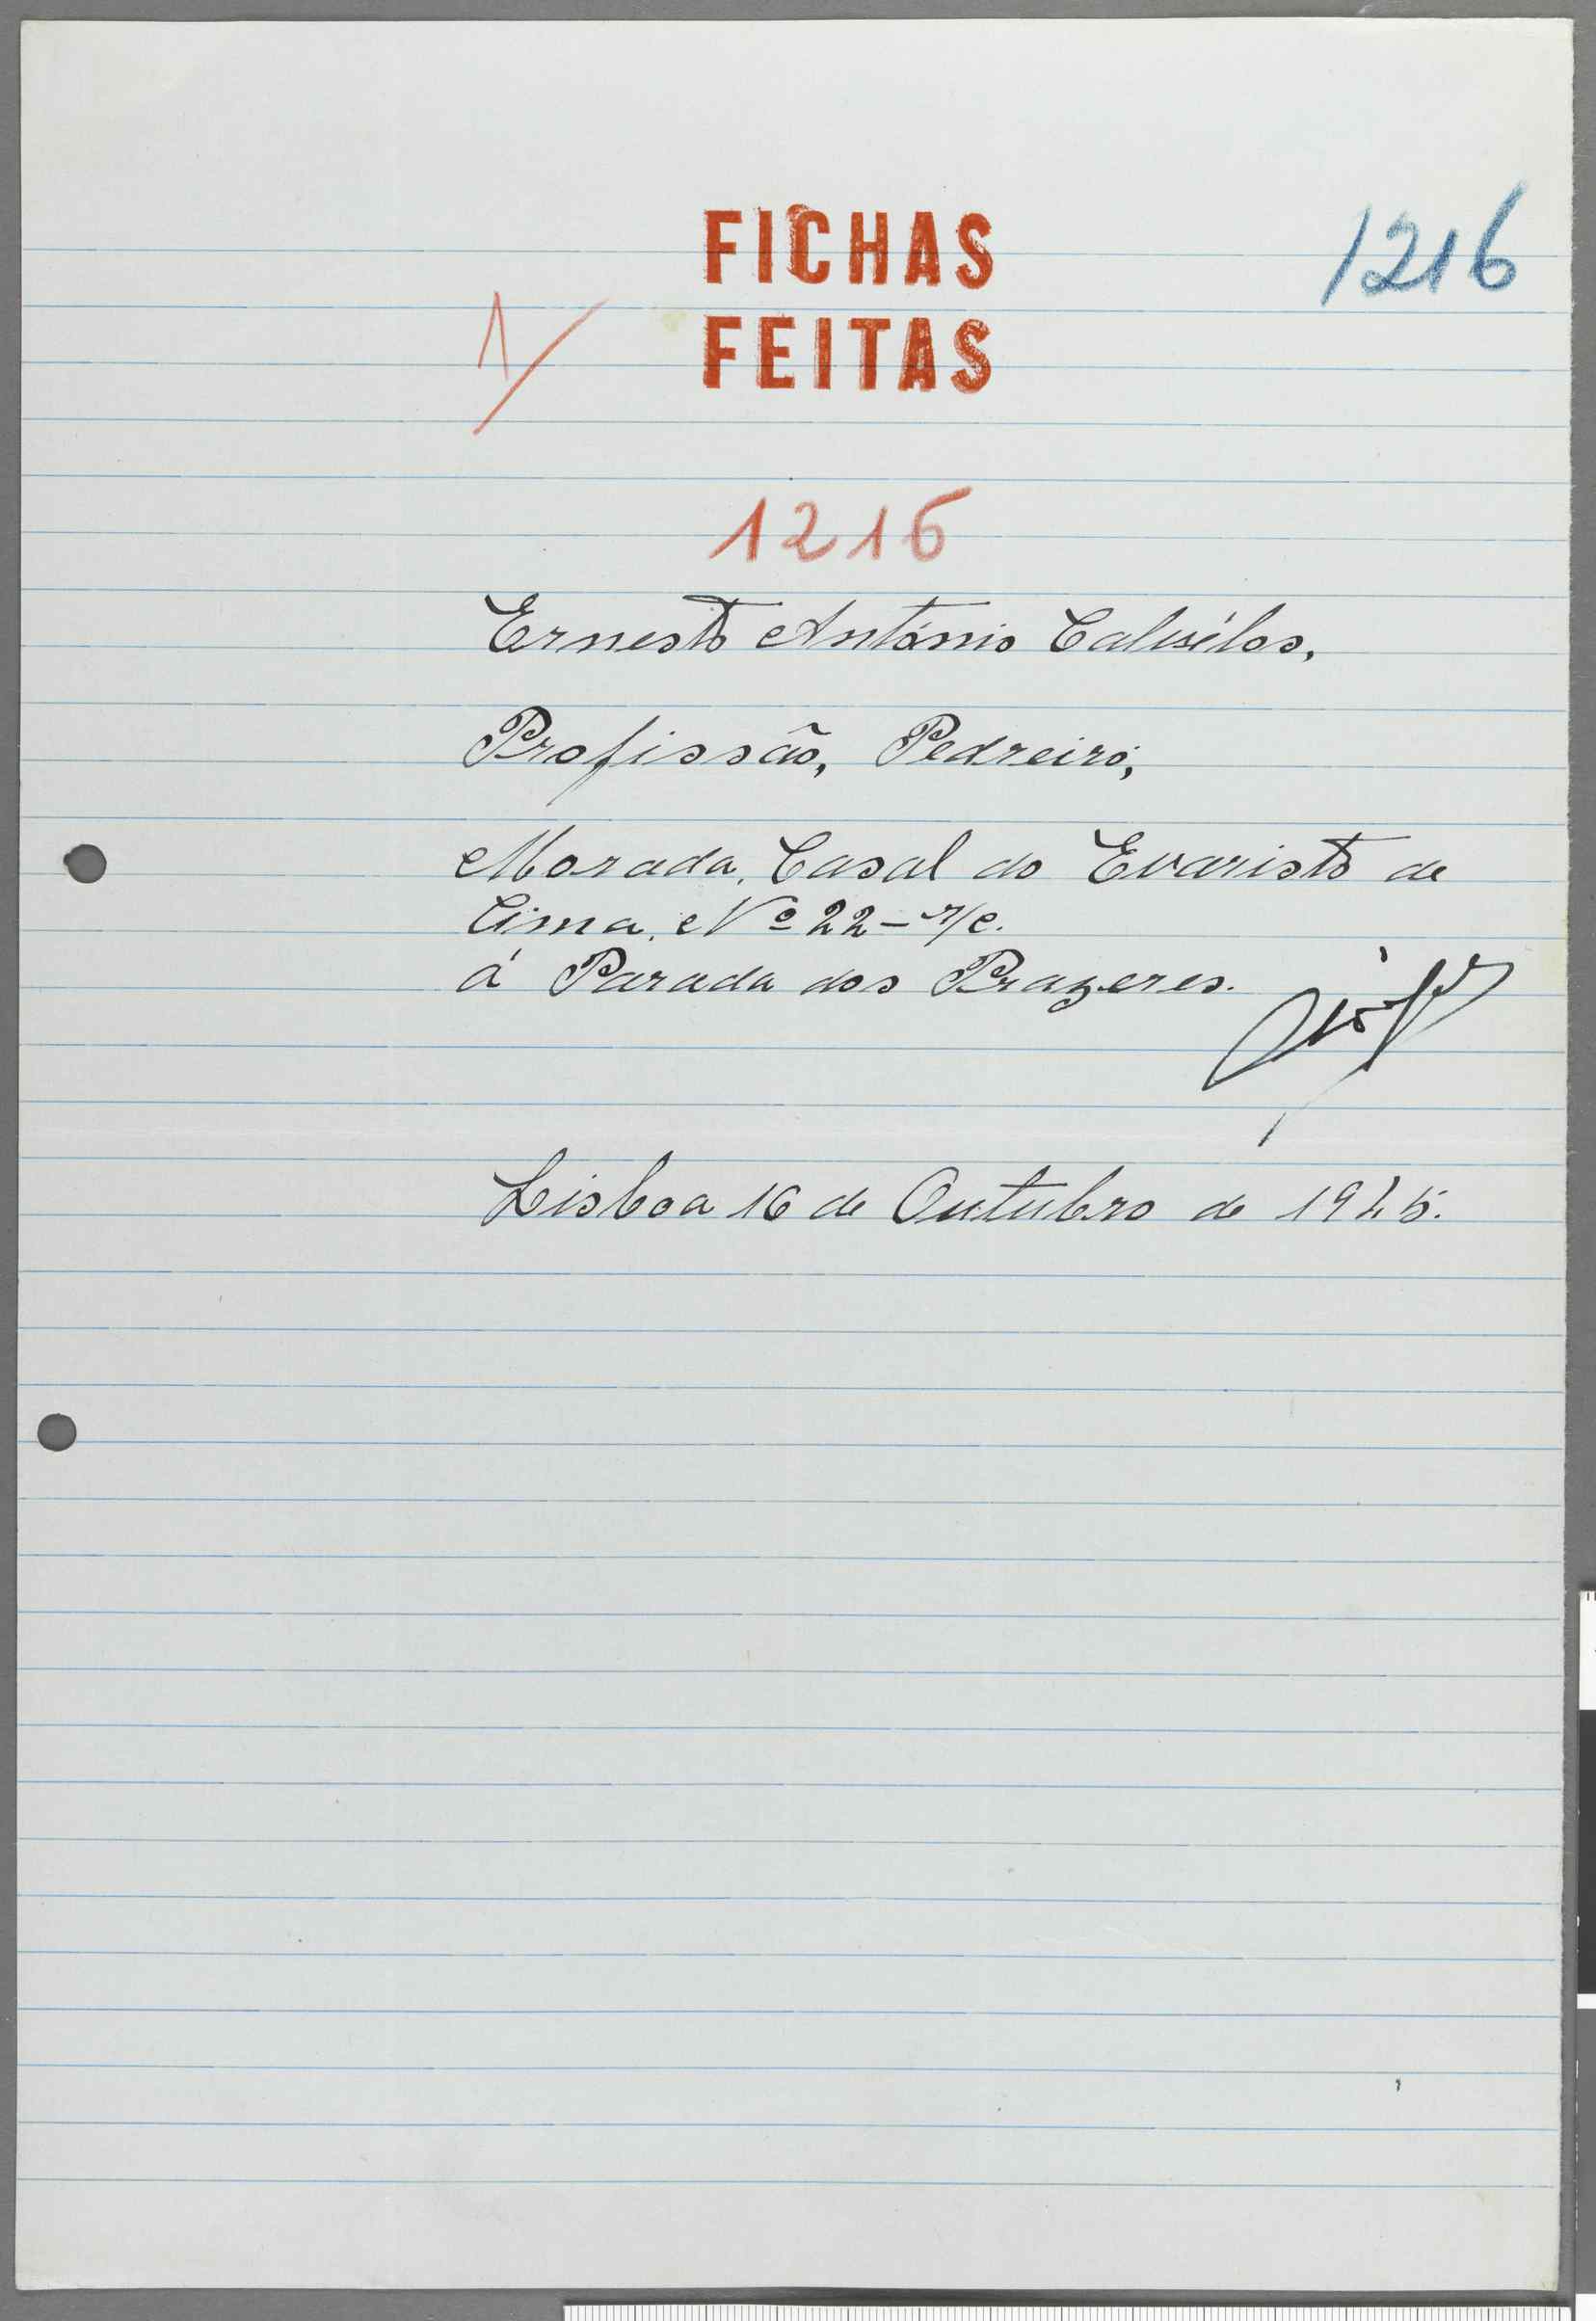 FICHAS
FEITAS
1216
1/
1216
Ernesto António
Profissão, Pedreiro,
Morada, Casal do Evaristo de
Cima, Nº 22 – r/c.
á Parada dos Prazeres.
Lisboa 16 de Outubro de 1945.